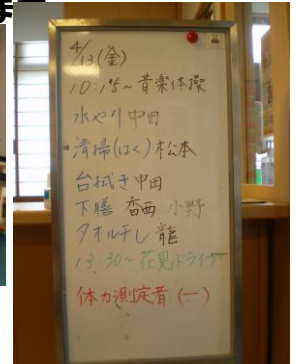 4/13(金)
10:15~音楽体操
水やり 中田
清掃(はく) 松本
台拭き 中田
下膳 香西 小野
タオル干し 龍
13:30~花見ドライブ
体力測定者(一)